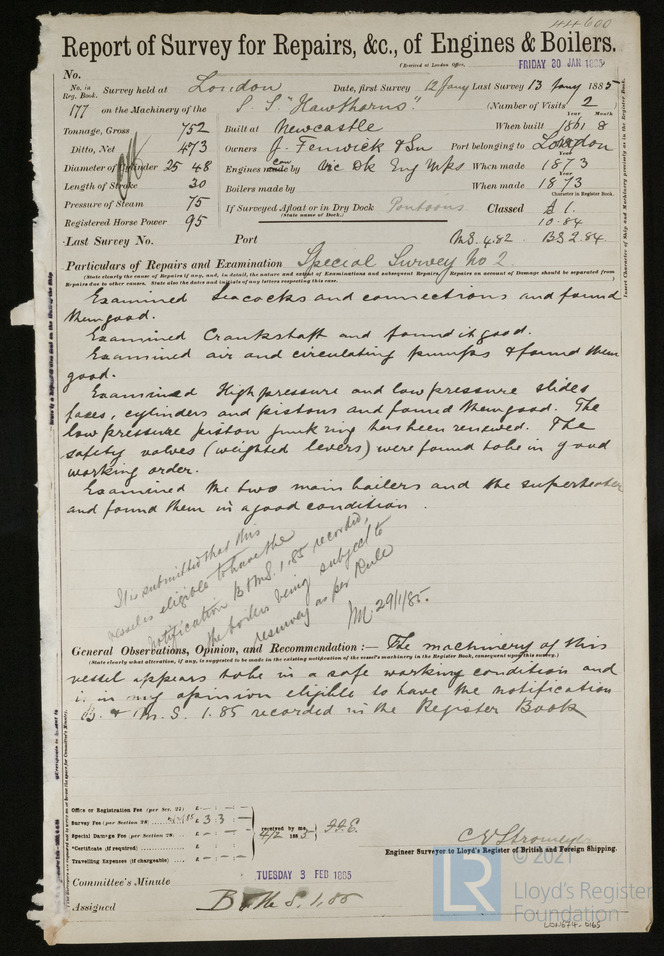 44600
Report of Survey for Repairs, &c., of Engines & Boilers.
(Received at London Office, FRIDAY 30 JAN 1885
No.
No. in Reg. Book. Survey held at London Date, first Survey 12 Jany Last Survey 13 Jany 1885
177 on the Machinery of the S. S. "Hawthorns". (Number of Visits 2
Tonnage, Gross 752 Built at Newcastle When built Year 1861 Month 8
Ditto, Net 473 Owners J. Fenwick & Son Port belonging to London
Diameter of Cylinder 25 48 Engines made by Vic Dk Eng Wks When made Year 1873
Length of Stroke 30 Boilers made by When made Year 1873
Pressure of Steam 75 If Surveyed Afloat or in Dry Dock Pontoons Classed Character in Register Book. A 1.
(State name of Dock.) 10.84
Registered Horse Power 95
Last Survey No. Port M.S. 4.82 BS 2.84.
Particulars of Repairs and Examination Special Survey No 2
(State clearly the cause of Repairs if any, and, in detail, the nature and extent of Examinations and subsequent Repairs. Repairs on account of Damage should be separated from
Repairs due to other causes. State also the dates and initials of any letters respecting this case.
Examined Seacocks and connections and found
them good.
Examined Crankshaft and found it good.
Examined air and circulating pumps & found them
good.
Examined High pressure and low pressure slides
faces, cylinders and pistons and found them good. The
low pressure piston junk ring has been renewed. The
safety valves (weighted levers) were found to be in good
working order.
Examined the two main boilers and the superheater
and found them in a good condition.
It is submitted that this
vessel is eligible to have the
notification B & MS. 1.85 recorded,
the boilers being subject to
resurvey as per Rule
29/1/85.
General Observations, Opinion, and Recommendation :— The machinery of this
(State clearly what alteration, if any, is suggested to be made in the existing notification of the vessel's machinery in the Register Book, consequent upon this survey.)
vessel appears to be in a safe working condition and
is in my opinion eligible to have the notification
B. & M. S. 1.85 recorded in the Register Book
Office or Registration Fee (per Sec. 27) £ - : - : -
Survey Fee (per Section 28) £ 3 : 3 : -
Special Damage Fee (per Section 28) £ - : - : -
*Certificate (if required) £ - : - : -
Travelling Expenses (if chargeable) £ - : - : -
received by me,
4/2 1885
C E Stromeyer
Engineer Surveyor to Lloyd's Register of British and Foreign Shipping.
Committee's Minute TUESDAY 3 FEB 1885
Assigned B & M S. 1.85
© 2021
LR Lloyd's Register
Foundation
LON674-0165